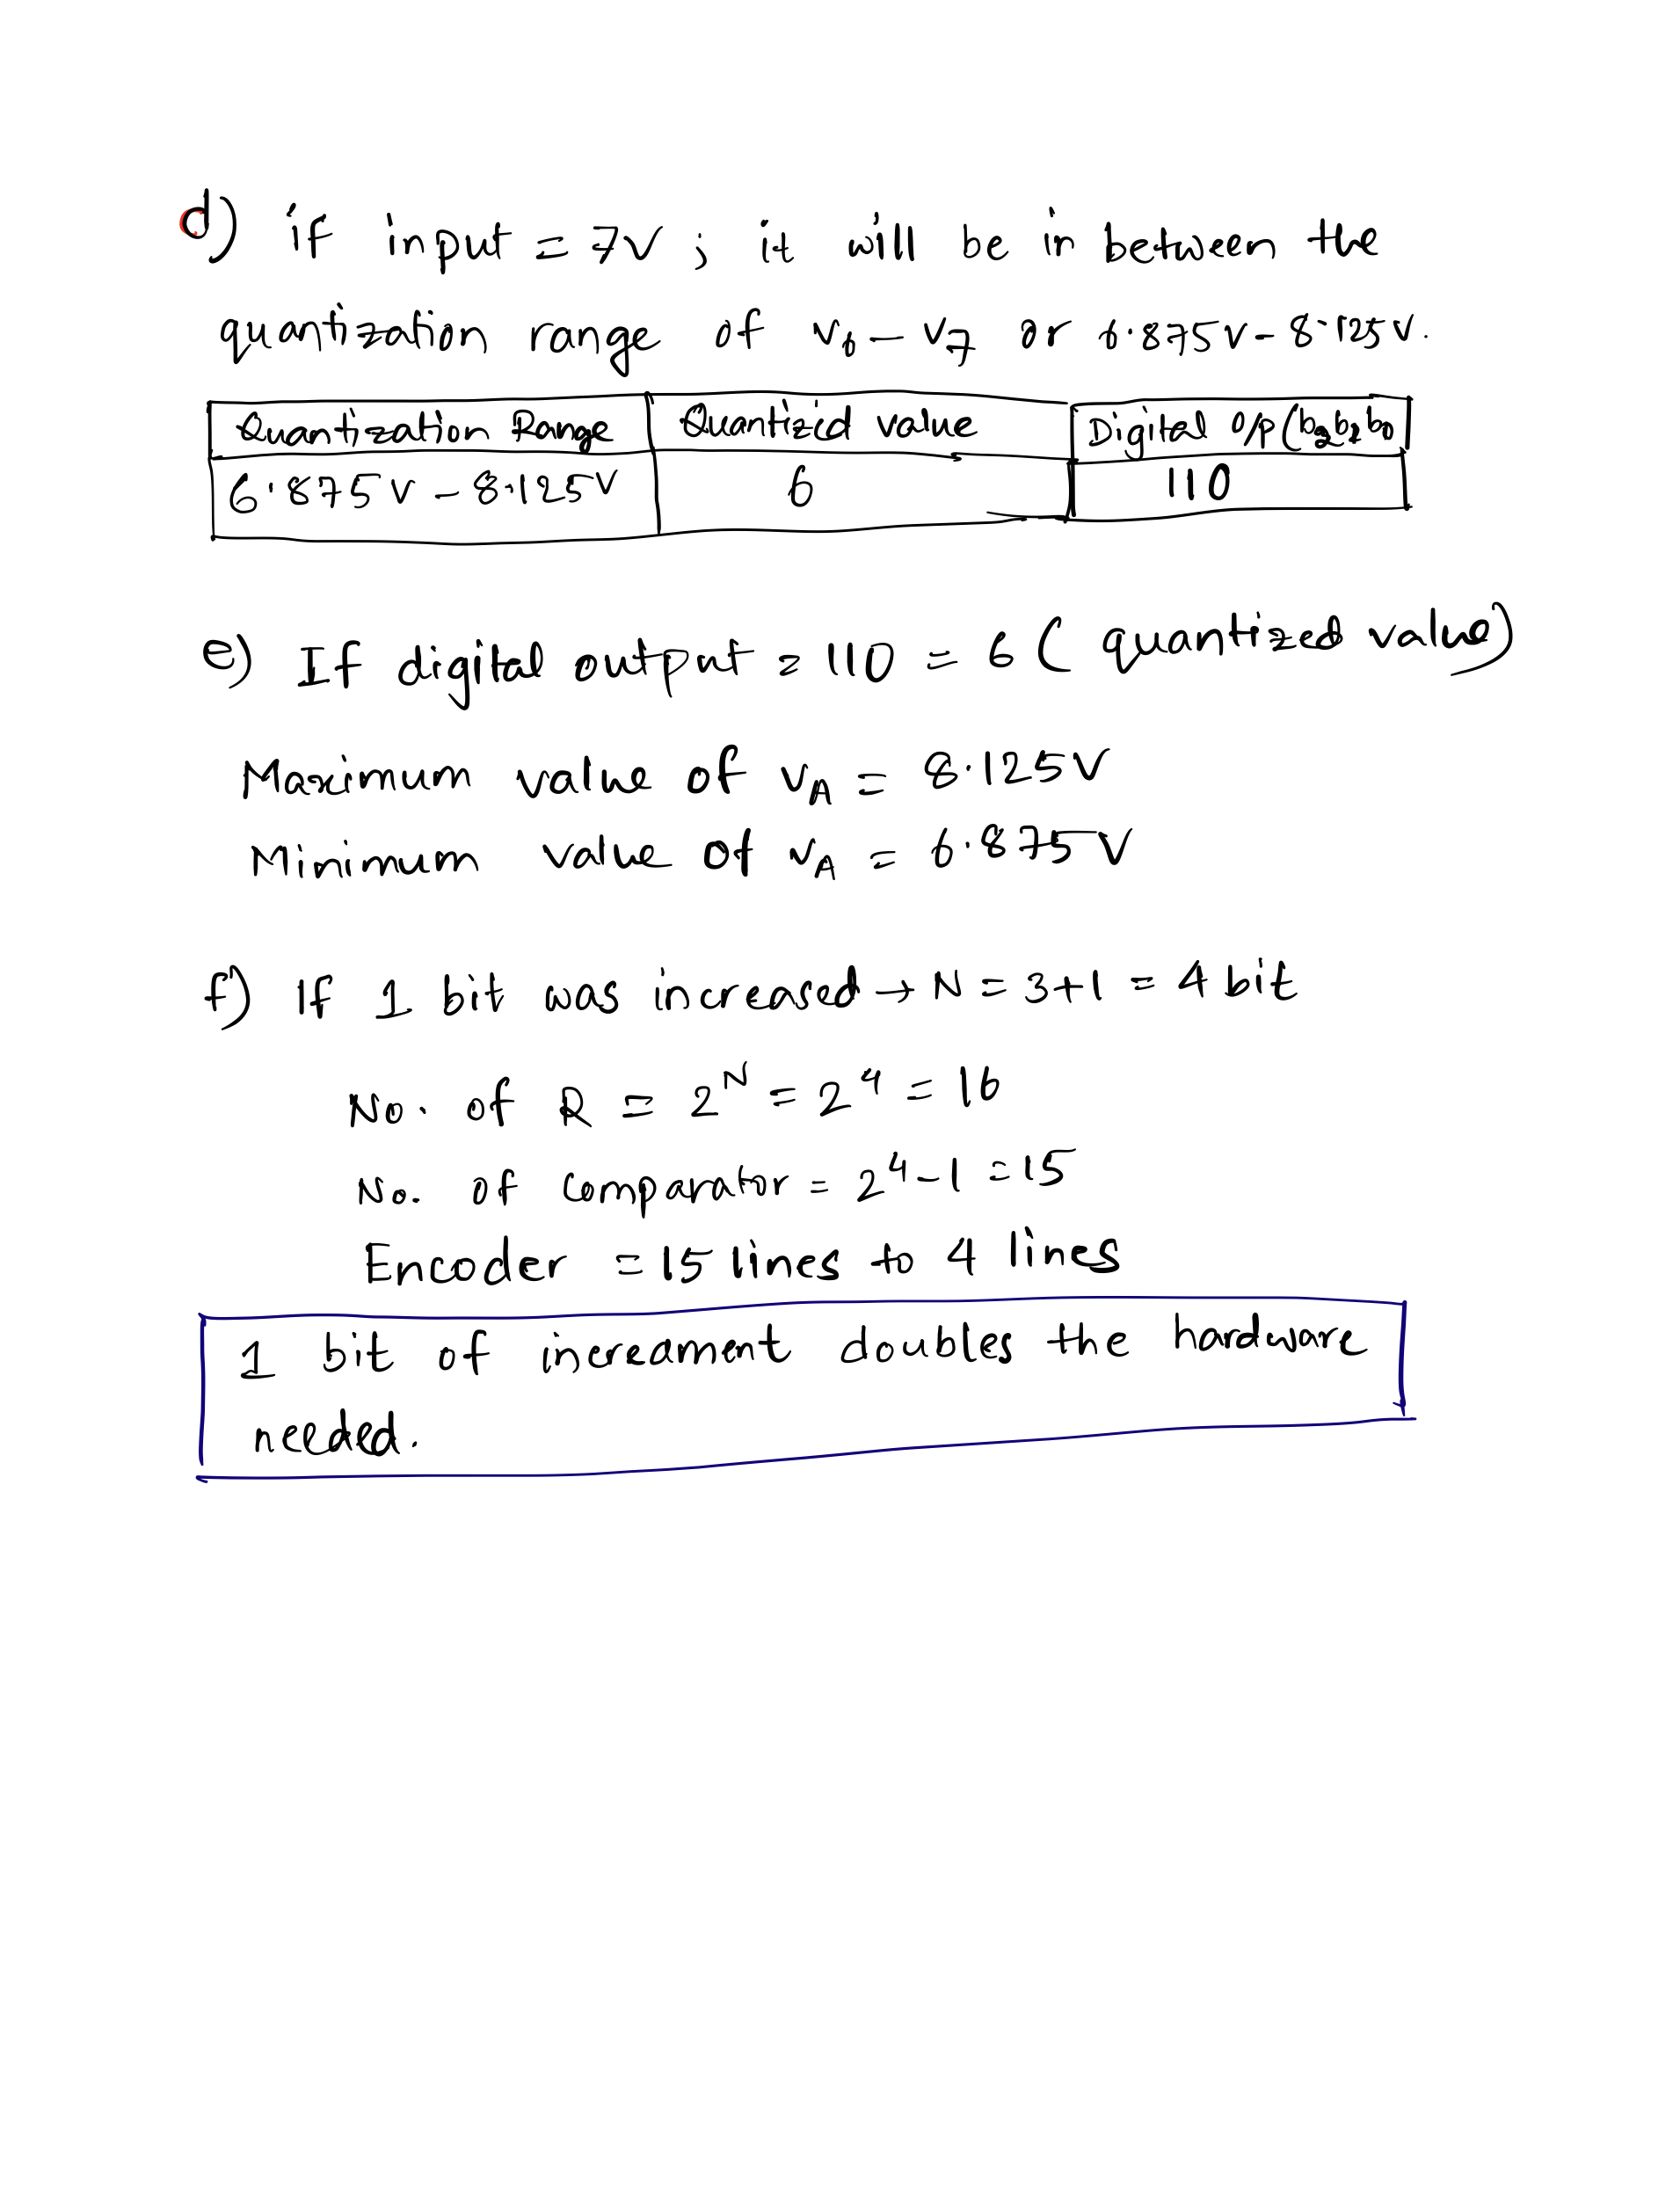 d) if input = 7V ; it will be in between the
quantization range of V6 – V7 or 6.875V – 8.125V.
Quantization Range Quantizid value Digital O/P (b2b1b0
6.875V – 8.125V 6 110
e) If digital output = 110 = 6 ( quantized value)
Maximum value of VA = 8.125V
Minimum value of VA = 6.875V
f) If 1 bit was increased → N = 3+1 = 4 bit
No. of R = 2^N = 2^4 = 16
No. of comparator = 2^4 – 1 = 15
Encoder = 15 lines to 4 lines
1 bit of increament doubles the hardware
needed.